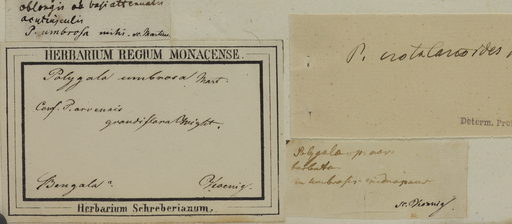 oblongis ac basi attenuatis
acutiusculis
P. umbrosa mihi. v. Martius
HERBARIUM REGIUM MONACENSE.
Polygala umbrosa Mart.
Conf. P. arvensis
grandiflora Wight.
Bengala
Koenig.
Herbarium Schreberianum.
P. crotalarioides
Determ. Prof
Polygala
barbata
in umbrosis
v. Koenig.